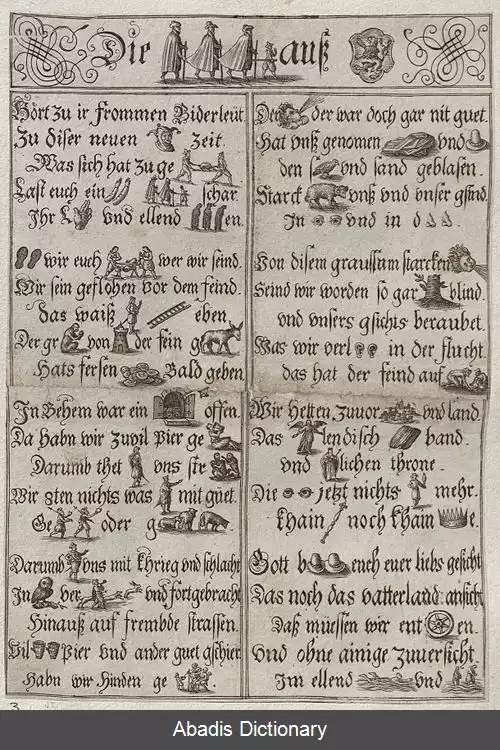 Die auß
Hört zu ir frommen Biderleüt
Zu diser neuen zeit.
Was sich hat zu ge
Last euch ein schar.
Ihr L vnd ellend en.
wir euch wer wir seind.
Wir sein geflohen vor dem feind.
das waiß eben
Der gr von der fein g
Hats fersen Bald geben
In Behem war ein offen.
Da habn wir zuvil Pier ge
Darumb thet vns str
Wir 8ten nichts was mit güet.
Ge oder g
Darumb vns mit khrieg vnd schlacht
In ver vnd fortgebracht
Hinauß auf frembde strassen.
Vil Pier vnd ander guet gschier
Habn wir hinden ge
3
Der der war doch gar nit guet.
Hat vnß genomen vnd
den s vnd sand geblasen.
Starck vnß vnd vnser gsind
In vnd in d
Von disem graussam starcken
Seind wir worden so gar blind.
vnd vnsers gsichts beraubet.
Was wir verl in der flucht.
das hat der feind auf
Wir hetten zuuor vnd land.
Das lendisch band.
vnd lichen throne.
Die jetzt nichts mehr.
khain noch khain e.
Gott b euch euer liebs gesicht
Das noch das vatterland ansicht
Daß müessen wir ent en.
Vnd ohne ainige zuuersicht
Im ellend vnd
Abadis Dictionary